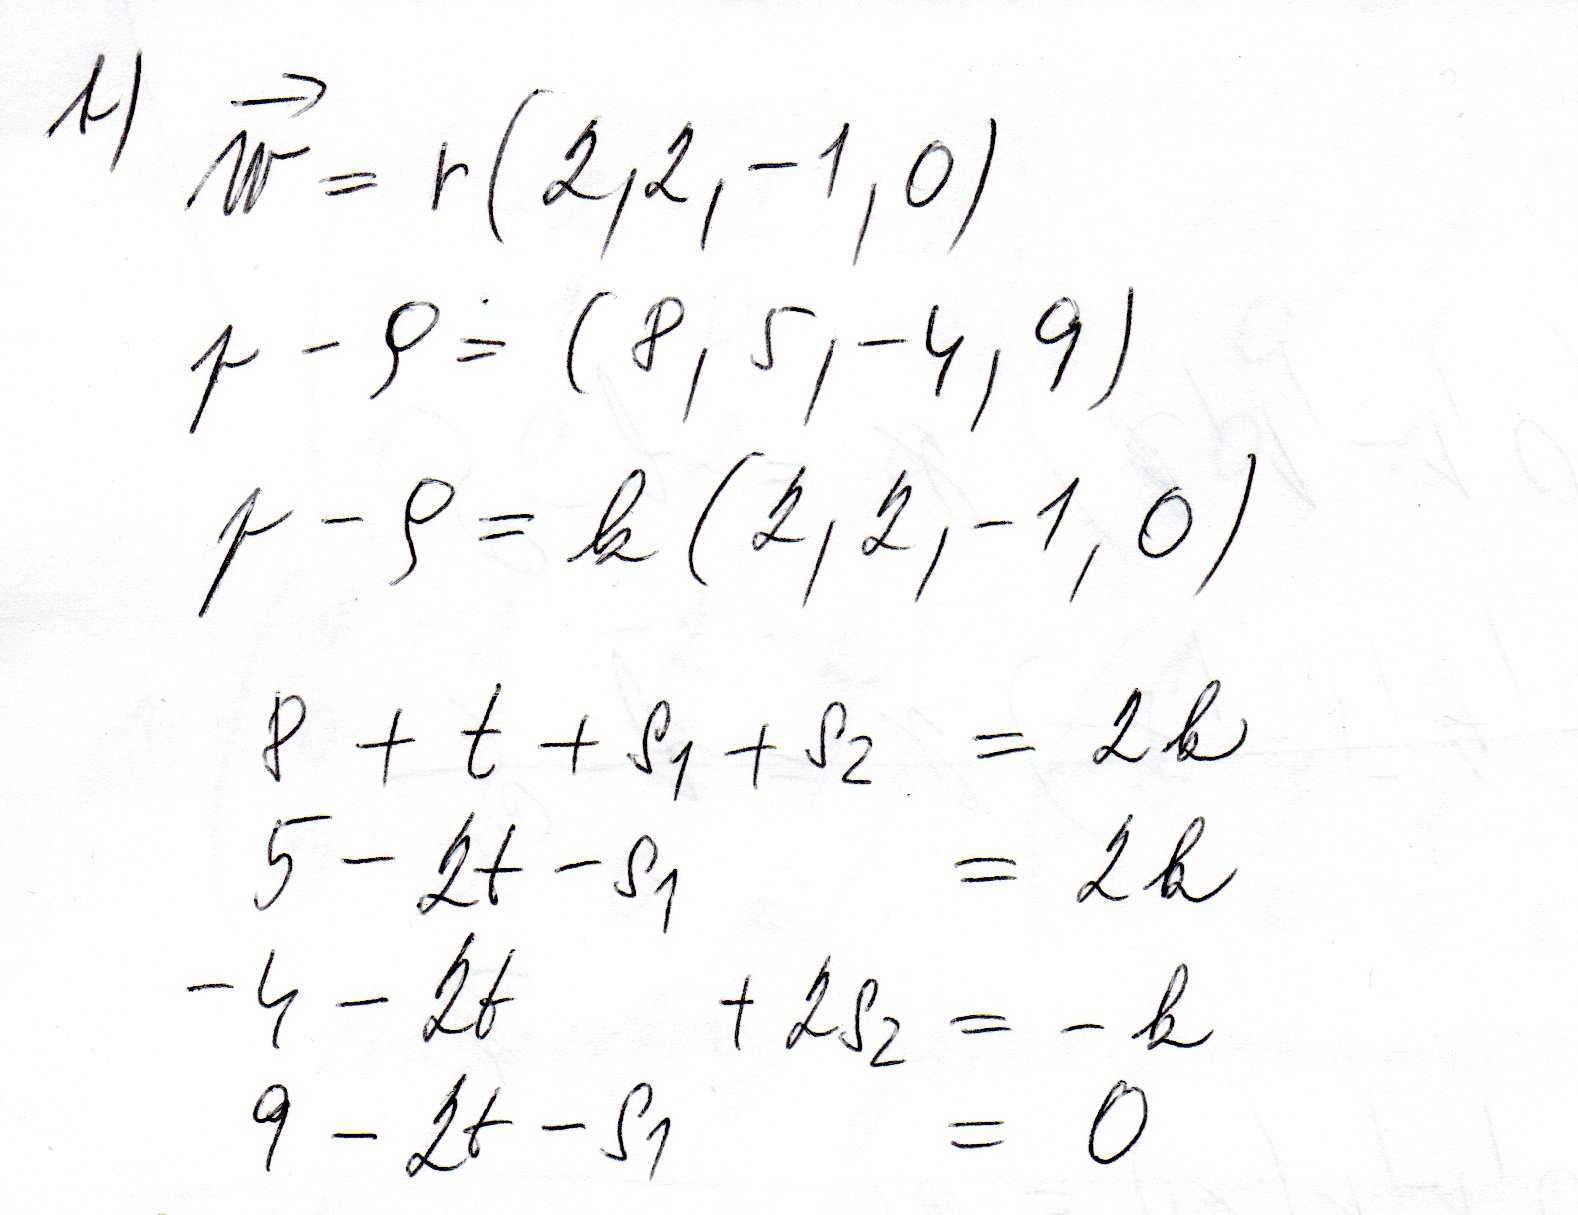 1)
→
w = r(2,2,-1,0)
p - ρ = (8,5,-4,9)
p - ρ = k(2,2,-1,0)
8 + t + s₁ + s₂ = 2k
5 - 2t - s₁ = 2k
-4 - 2t + 2s₂ = -k
9 - 2t - s₁ = 0